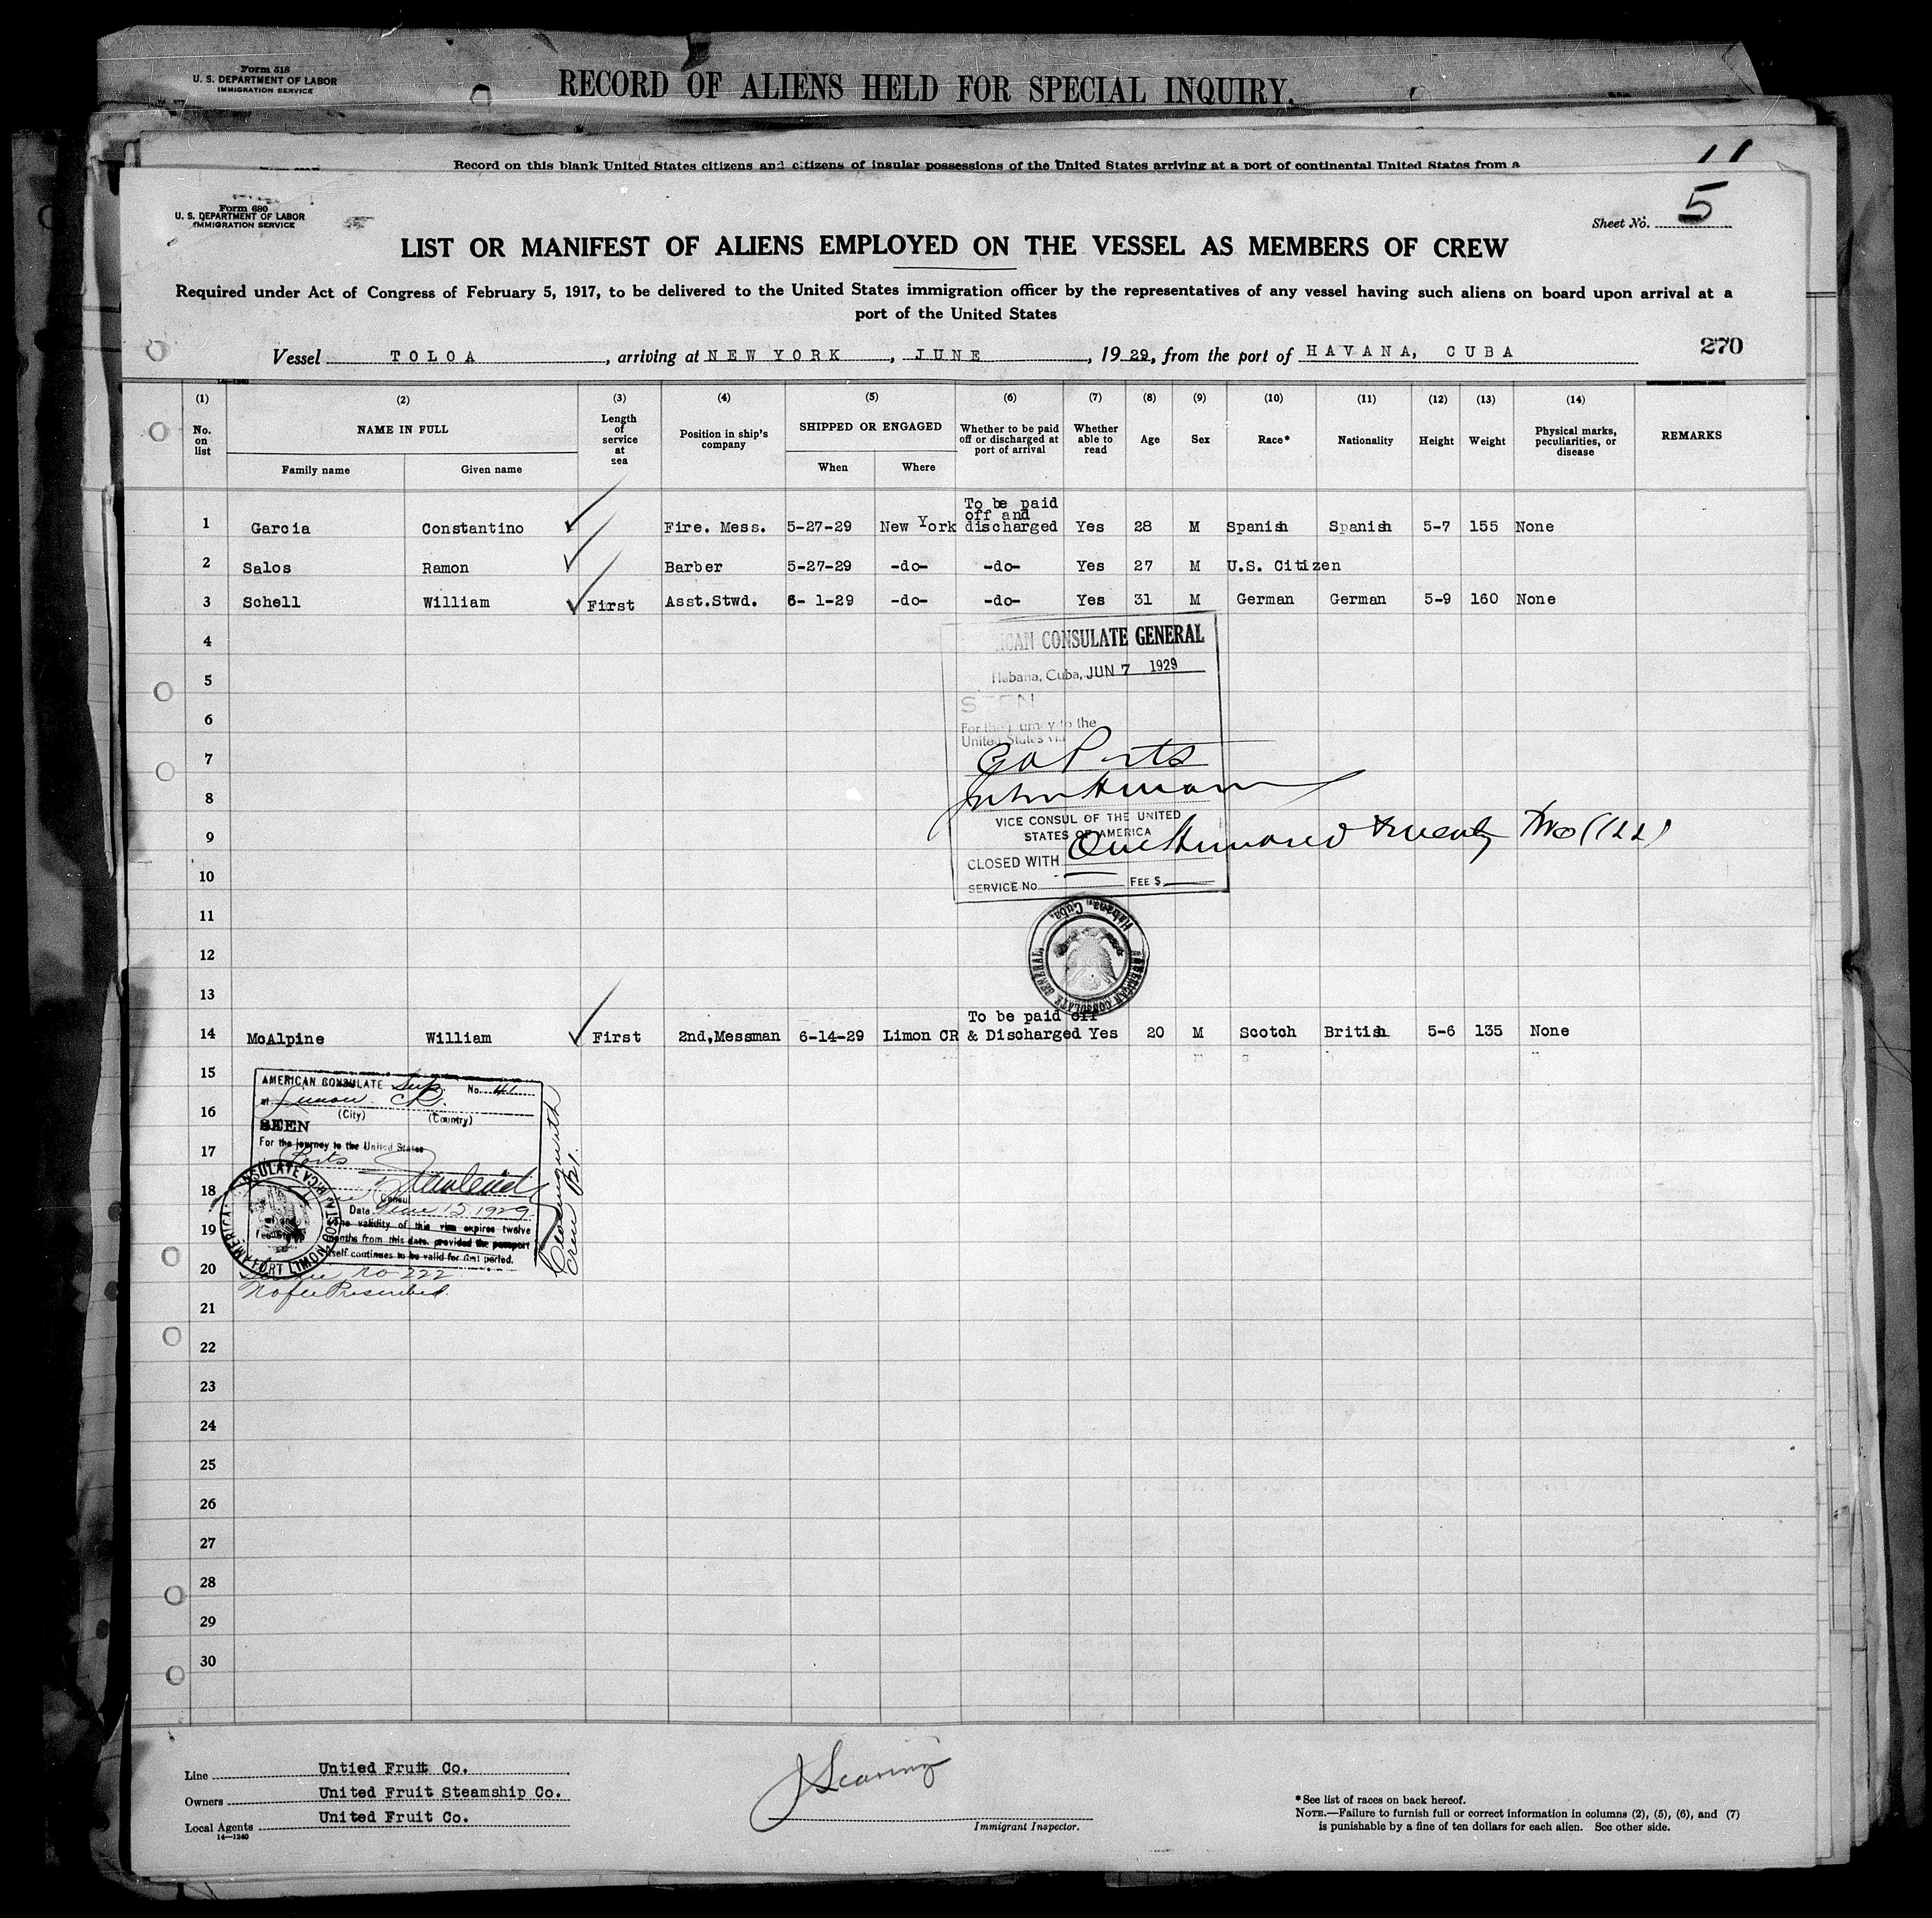 Form 518
U. S. DEPARTMENT OF LABOR
IMMIGRATION SERVICE
RECORD OF ALIENS HELD FOR SPECIAL INQUIRY.
Record on this blank United States citizens and citizens of insular possessions of the United States arriving at a port of continental United States from a
11
Form 680
U. S. DEPARTMENT OF LABOR
IMMIGRATION SERVICE
Sheet No. 5
LIST OR MANIFEST OF ALIENS EMPLOYED ON THE VESSEL AS MEMBERS OF CREW
Required under Act of Congress of February 5, 1917, to be delivered to the United States immigration officer by the representatives of any vessel having such aliens on board upon arrival at a
port of the United States
Vessel TOLOA, arriving at NEW YORK, JUNE, 1929, from the port of HAVANA, CUBA
270
14-1240
(1) (2) (3) (4) (5) (6) (7) (8) (9) (10) (11) (12) (13) (14)
No. on list
NAME IN FULL
Family name
Given name
Length of service at sea
Position in ship's company
SHIPPED OR ENGAGED
When
Where
Whether to be paid off or discharged at port of arrival
Whether able to read
Age
Sex
Race*
Nationality
Height
Weight
Physical marks, peculiarities, or disease
REMARKS
1 Garcia Constantino Fire. Mess. 5-27-29 New York To be paid off and discharged Yes 28 M Spanish Spanish 5-7 155 None
2 Salos Ramon Barber 5-27-29 -do- -do- Yes 27 M U.S. Citizen
3 Schell William First Asst.Stwd. 6- 1-29 -do- -do- Yes 31 M German German 5-9 160 None
4
5
6
7
8
9
10
11
12
13
ICAN CONSULATE GENERAL
Habana, Cuba, JUN 7 1929
SEEN
For the journey to the
United States via
VICE CONSUL OF THE UNITED
STATES OF AMERICA
CLOSED WITH One Hundred twenty Two (122)
SERVICE No. FEE $
AMERICAN CONSULATE GENERAL, Habana, Cuba.
14 McAlpine William First 2nd,Messman 6-14-29 Limon CR To be paid off & Discharged Yes 20 M Scotch British 5-6 135 None
15
16
17
18
19
20
21
22
23
24
25
26
27
28
29
30
AMERICAN CONSULATE Sup. No. 41
at Limon CR.
(City) (Country)
SEEN
For the journey to the United States
Ports
Consul
Date June 12 1929
The validity of this visa expires twelve
months from this date, provided the passport
itself continues to be valid for that period.
AMERICAN CONSULATE
PORT LIMON, COSTA RICA
Service no 222
No fee Prescribed.
Line Untied Fruit Co.
Owners United Fruit Steamship Co.
Local Agents United Fruit Co.
14-1240
Immigrant Inspector.
*See list of races on back hereof.
NOTE.—Failure to furnish full or correct information in columns (2), (5), (6), and (7)
is punishable by a fine of ten dollars for each alien. See other side.